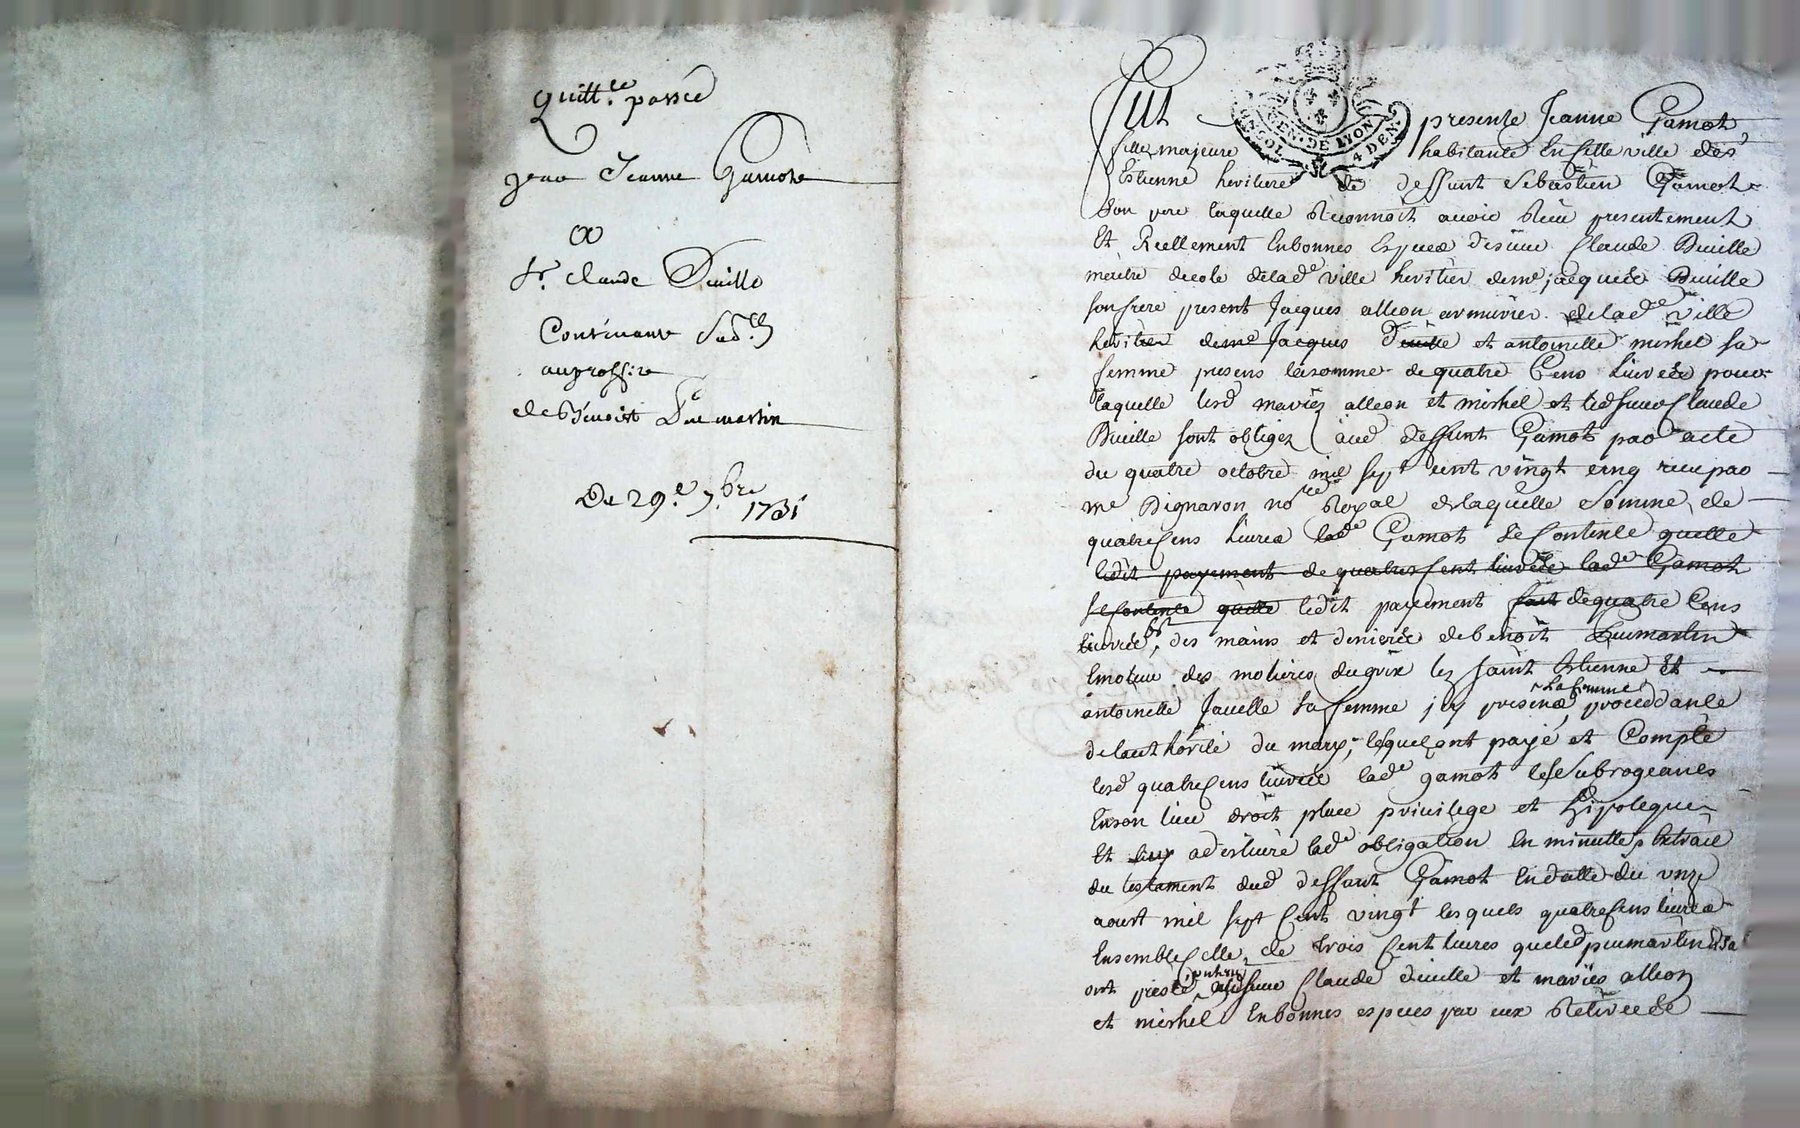 Quitt.ce passée
par Jeanne Gamot
a
Sr. Claude Duille
Contenant Subr.on
au proffit
de Benoist Puimartin
Du 29.e 7.bre
1731
GEN. DE LYON
4 DEN.
Fut presente Jeanne Gamot
fille majeure habitante en cette ville de St
Estienne heritiere de deffunt Sebastien Gamot
son pere laquelle Reconnoit avoir Receu presentement
Et Reellement en bonnes Especes de sieur Claude Duille
maitre decole de lade ville heritier de me jacques Duille
son frere present Jacques alleon armurier de lade ville
heritier de me Jacques Duille et antoinette mishel sa
femme presens la somme de quatre Cens Livres pour
laquelle lesd mariez alleon et mishel et led sieur Claude
Duille sont obligez aud deffunt Gamot par acte
du quatre octobre mil sept cent vingt cinq receu par
me Pignaron nore Royal de laquelle Somme de
quatre Cens Livres lade Gamot se Contente quelle
ledit payement de quatre cent livres lade Gamot
se contente quelle ledit payement fait de quatre Cens
livres des mains et deniers de benoit Puimartin
Emoleur des molieres du lez saint Estienne Et
antoinette Javelle sa femme icy presens la femme procedante
de lauthorité du mary, lesquel ont payé et Compté
lesd quatre Cens livres lade gamot les subrogeant
En son lieu droit place privilege et hipoteque
Et lade obligation En minutte Extrait
du testament dud deffunt Gamot En datte du onze
aoust mil sept Cent vingt lesquels quatre Cens livres
Ensemble Celle de trois Cent livres que led puimartin Et sa
ont presté sieur Claude duille et mariés alleon
et mishel En bonnes especes par eux Retirée de